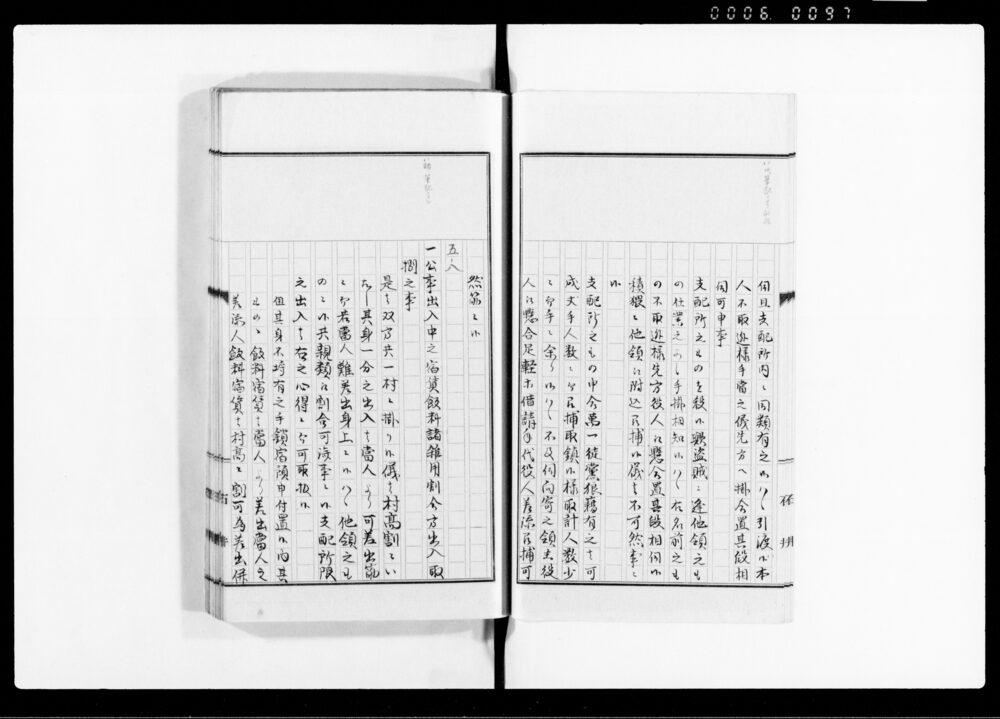 0006 0097
伺且支配所内ニ同類有之候ハヽ引渡候本
人不取逃様手当之儀先方ヘ掛合置其段相
伺可申事
支配所之ものを殺候歟盗賊ニ逢他領之も
の仕業之由ニ手掛相知候ハヽ右名前之も
の不取逃様先方役人江懸合置其段相伺候
積猥ニ他領江附込召捕候儀は不可然事ニ
候
支配所之もの中合萬一徒党狼藉有之は可
成丈手人数ニ而召捕取鎮候様取計人数少
ニ而手ニ余り候ハヽ不及伺向寄之領主役
人江懸合足軽等借請手代役人差添召捕可
然筋ニ候
五八
一公事出入中之宿賃飯料諸雑用割合方出入取
捌之事
是は双方共一村ニ掛り候儀は村高割ニい
たし其身一分之出入は当人より可差出筋
ニ而若当人難差出身上ニ候ハヽ他領之も
のニ候共親類江割合可済事ニ候支配所限
之出入は右之心得ニ而可取捌候
但其身不埒有之手鎖宿預申付置候内其
ものヽ飯料宿賃は当人より差出当人之
差添人飯料宿賃は村高ニ割可為差出併